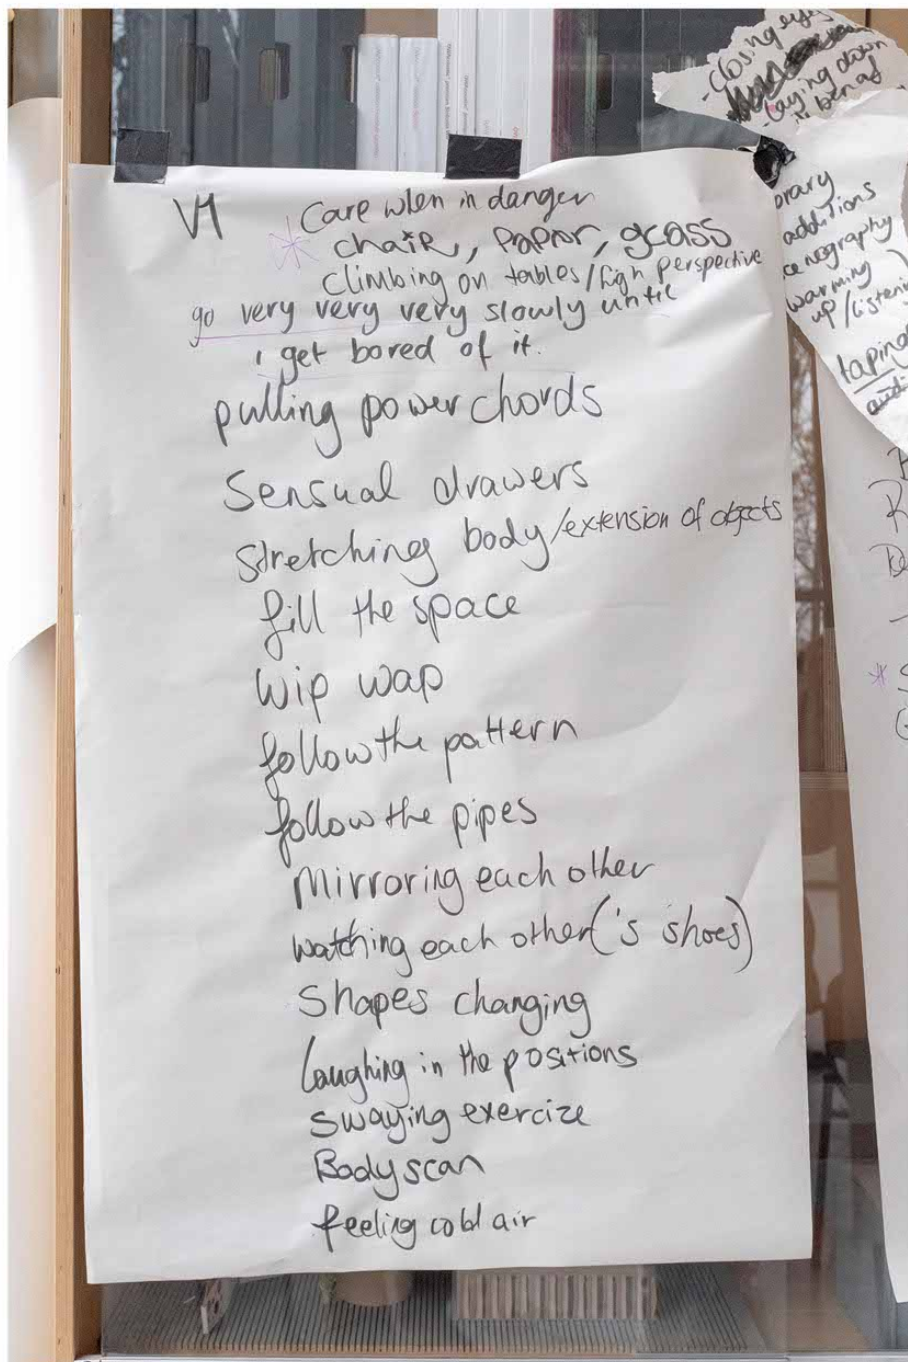 V1
Care when in danger
chair, papor, gcass
climbing on tables/high perspective
go very very very slowly until
i get bored of it.
pulling power chords
Sensual drawers
stretching body/extension of objects
fill the space
wip wap
follow the pattern
follow the pipes
Mirroring each other
watching each other('s shoes)
Shapes changing
Laughing in the positions
swaying exercize
Bodyscan
feeling cold air
-closing eyes
-laying down
orary
additions
cenography
warming
up/listenin
taping